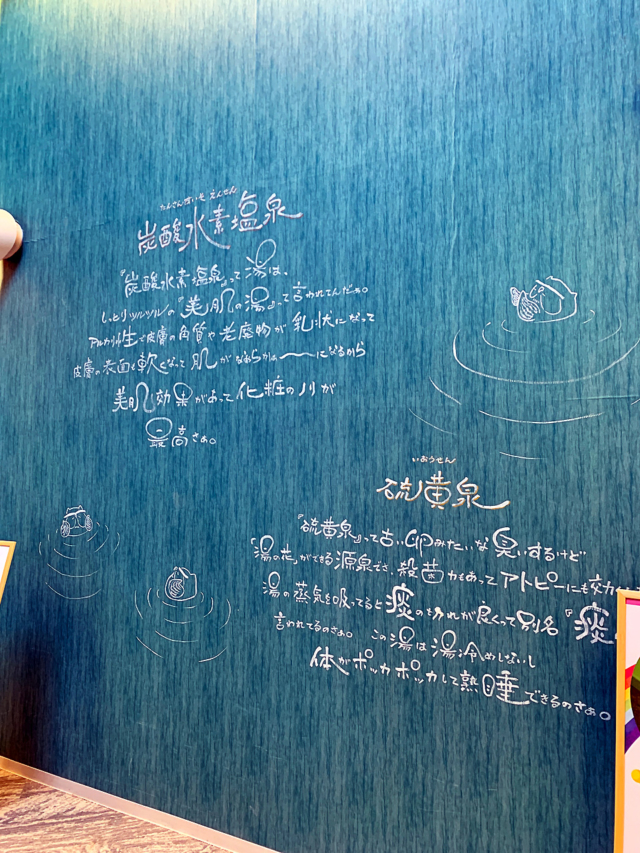 たんさんすいそ えんせん
炭酸水素塩泉
『炭酸水素塩泉』って湯は、
しっとりツルツルの『美肌の湯』って言われてんださぁ。
アルカリ性で皮膚の角質や老廃物が乳状になって
皮膚の表面も軟くなって肌がなめらかぁ〜になるから
美肌効果があって化粧のノリが
最高さぁ。
いおうせん
硫黄泉
『硫黄泉』って古い卵みたいな臭いするけど
「湯の花」ができる源泉でさ、殺菌力もあってアトピーにも効
湯の蒸気を吸ってると痰のキレが良くって別名『痰
言われてるのさぁ。 この湯は湯冷めしないし
体がポッカポッカして熟睡できるのさぁ。